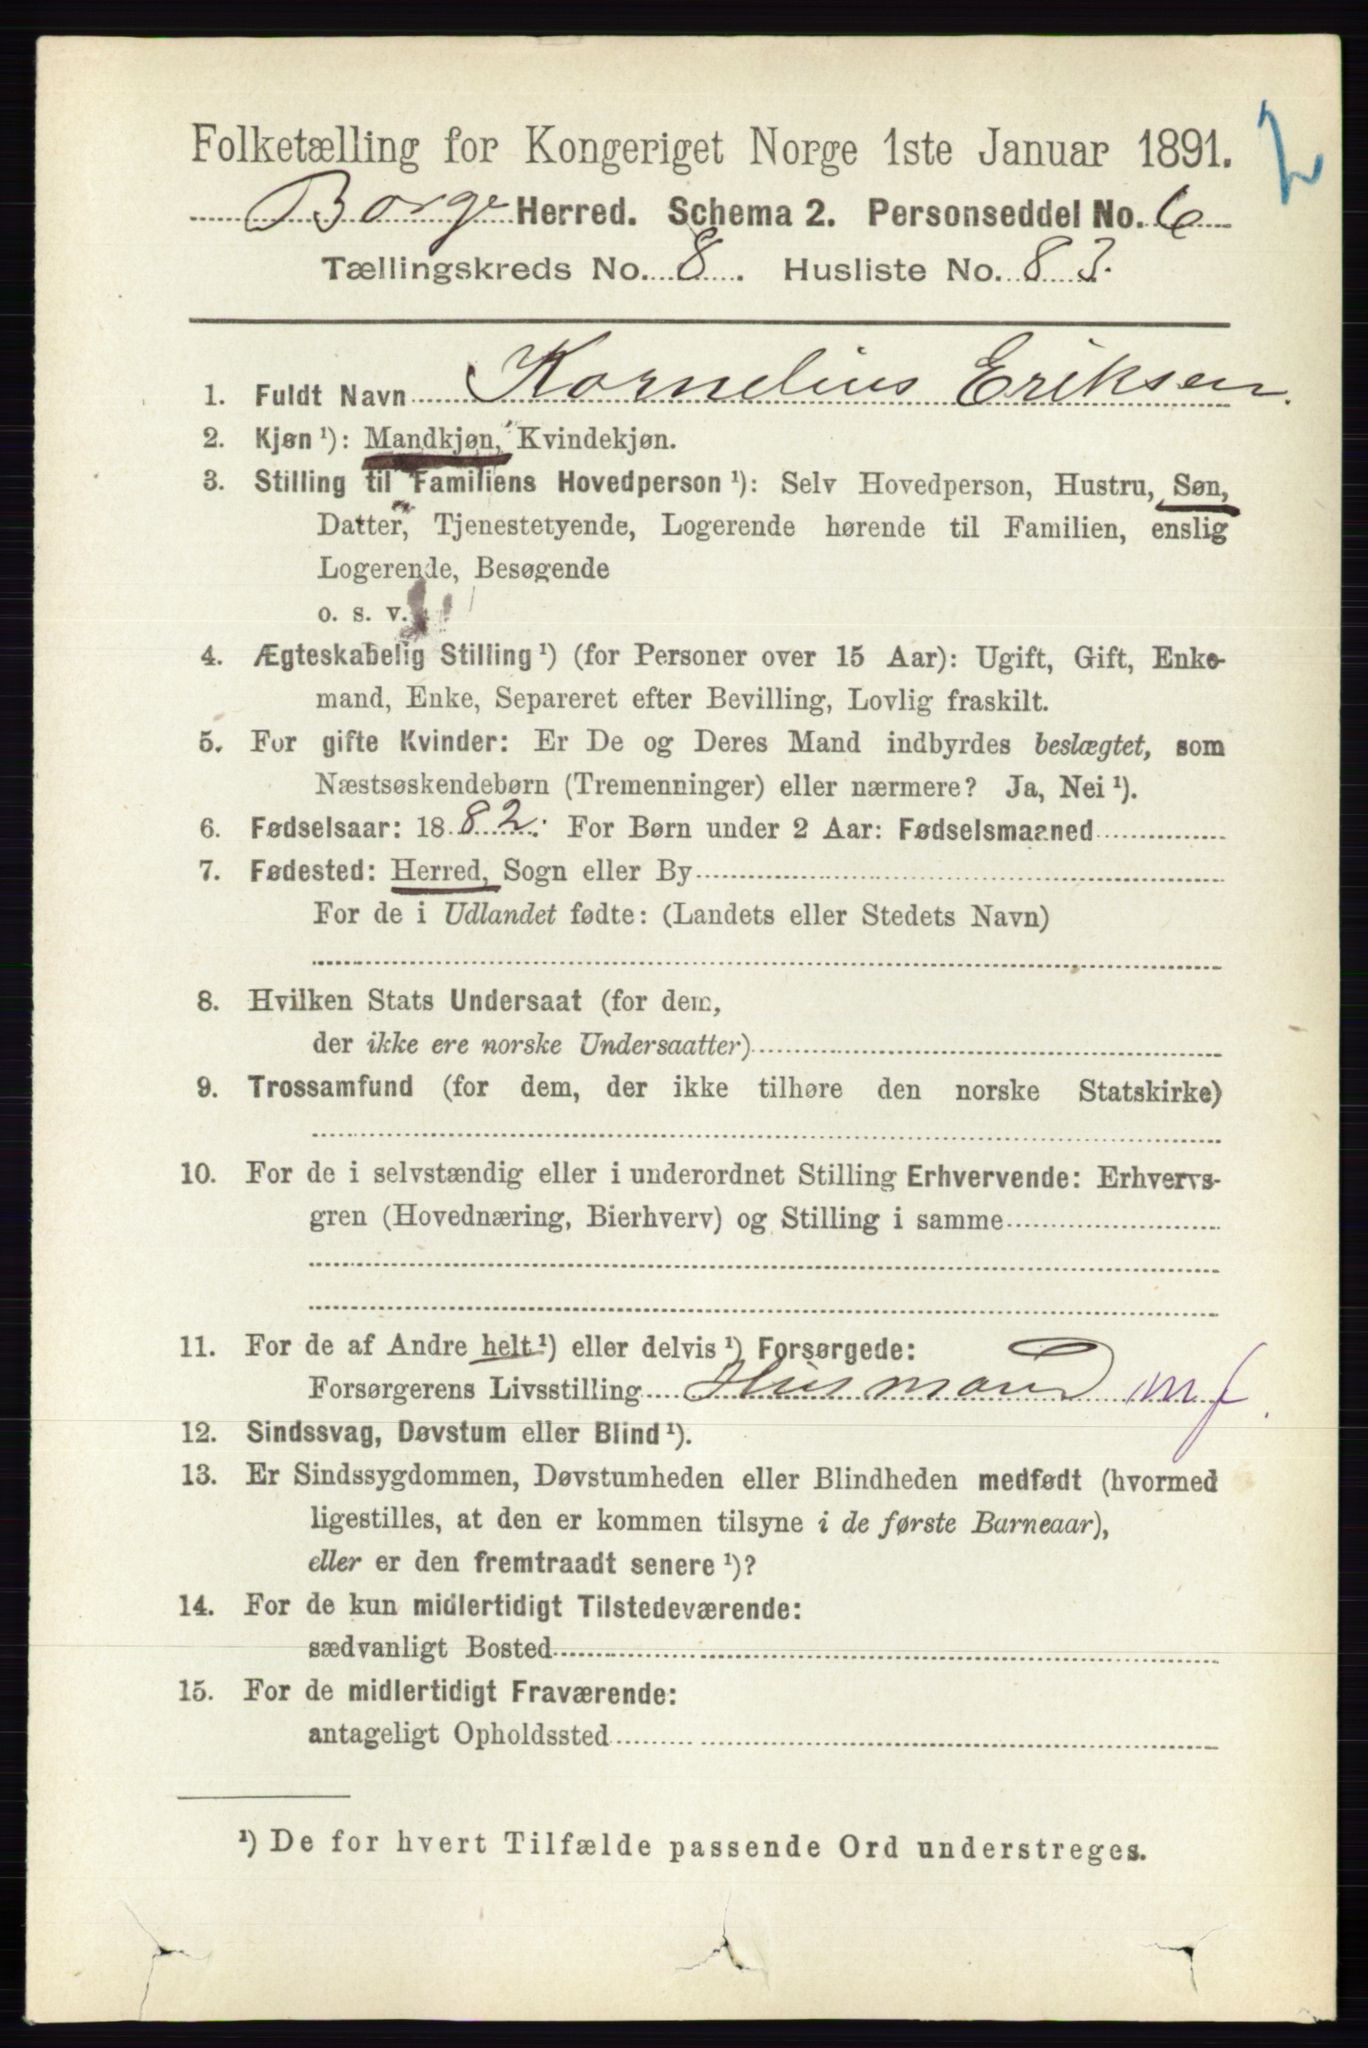 Folketælling for Kongeriget Norge 1ste Januar 1891.
Borge Herred. Schema 2. Personseddel No. 6
Tællingskreds No. 8. Husliste No. 83.
1. Fuldt Navn Kornelius Eriksen.
2. Kjøn ¹): Mandkjøn, Kvindekjøn.
3. Stilling til Familiens Hovedperson ¹): Selv Hovedperson, Hustru, Søn,
Datter, Tjenestetyende, Logerende hørende til Familien, enslig
Logerende, Besøgende
o. s. v.
4. Ægteskabelig Stilling ¹) (for Personer over 15 Aar): Ugift, Gift, Enke-
mand, Enke, Separeret efter Bevilling, Lovlig fraskilt.
5. For gifte Kvinder: Er De og Deres Mand indbyrdes beslægtet, som
Næstsøskendebørn (Tremenninger) eller nærmere? Ja, Nei ¹).
6. Fødselsaar: 1882. For Børn under 2 Aar: Fødselsmaaned
7. Fødested: Herred, Sogn eller By
For de i Udlandet fødte: (Landets eller Stedets Navn)
8. Hvilken Stats Undersaat (for dem,
der ikke ere norske Undersaatter)
9. Trossamfund (for dem, der ikke tilhøre den norske Statskirke)
10. For de i selvstændig eller i underordnet Stilling Erhvervende: Erhvervs-
gren (Hovednæring, Bierhverv) og Stilling i samme
11. For de af Andre helt ¹) eller delvis ¹) Forsørgede:
Forsørgerens Livsstilling Husmand mf.
12. Sindssvag, Døvstum eller Blind ¹).
13. Er Sindssygdommen, Døvstumheden eller Blindheden medfødt (hvormed
ligestilles, at den er kommen tilsyne i de første Barneaar),
eller er den fremtraadt senere ¹)?
14. For de kun midlertidigt Tilstedeværende:
sædvanligt Bosted
15. For de midlertidigt Fraværende:
antageligt Opholdssted
¹) De for hvert Tilfælde passende Ord understreges.